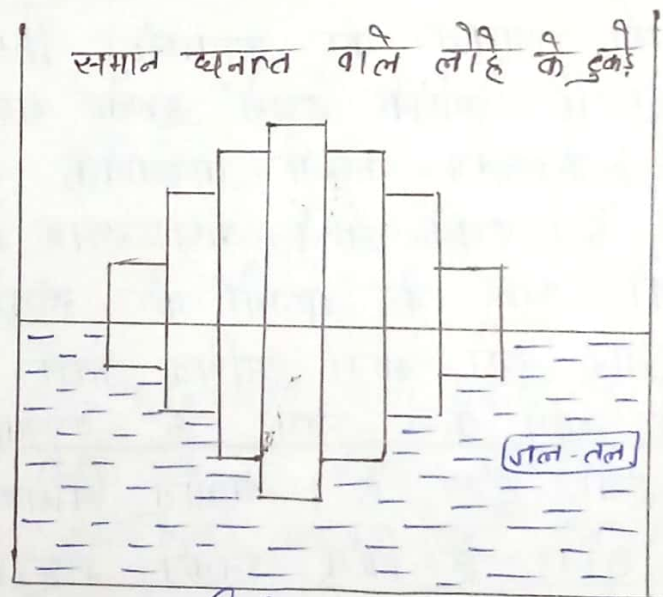 समान घनत्त वाले लोहे के टुकड़े
जल-तल